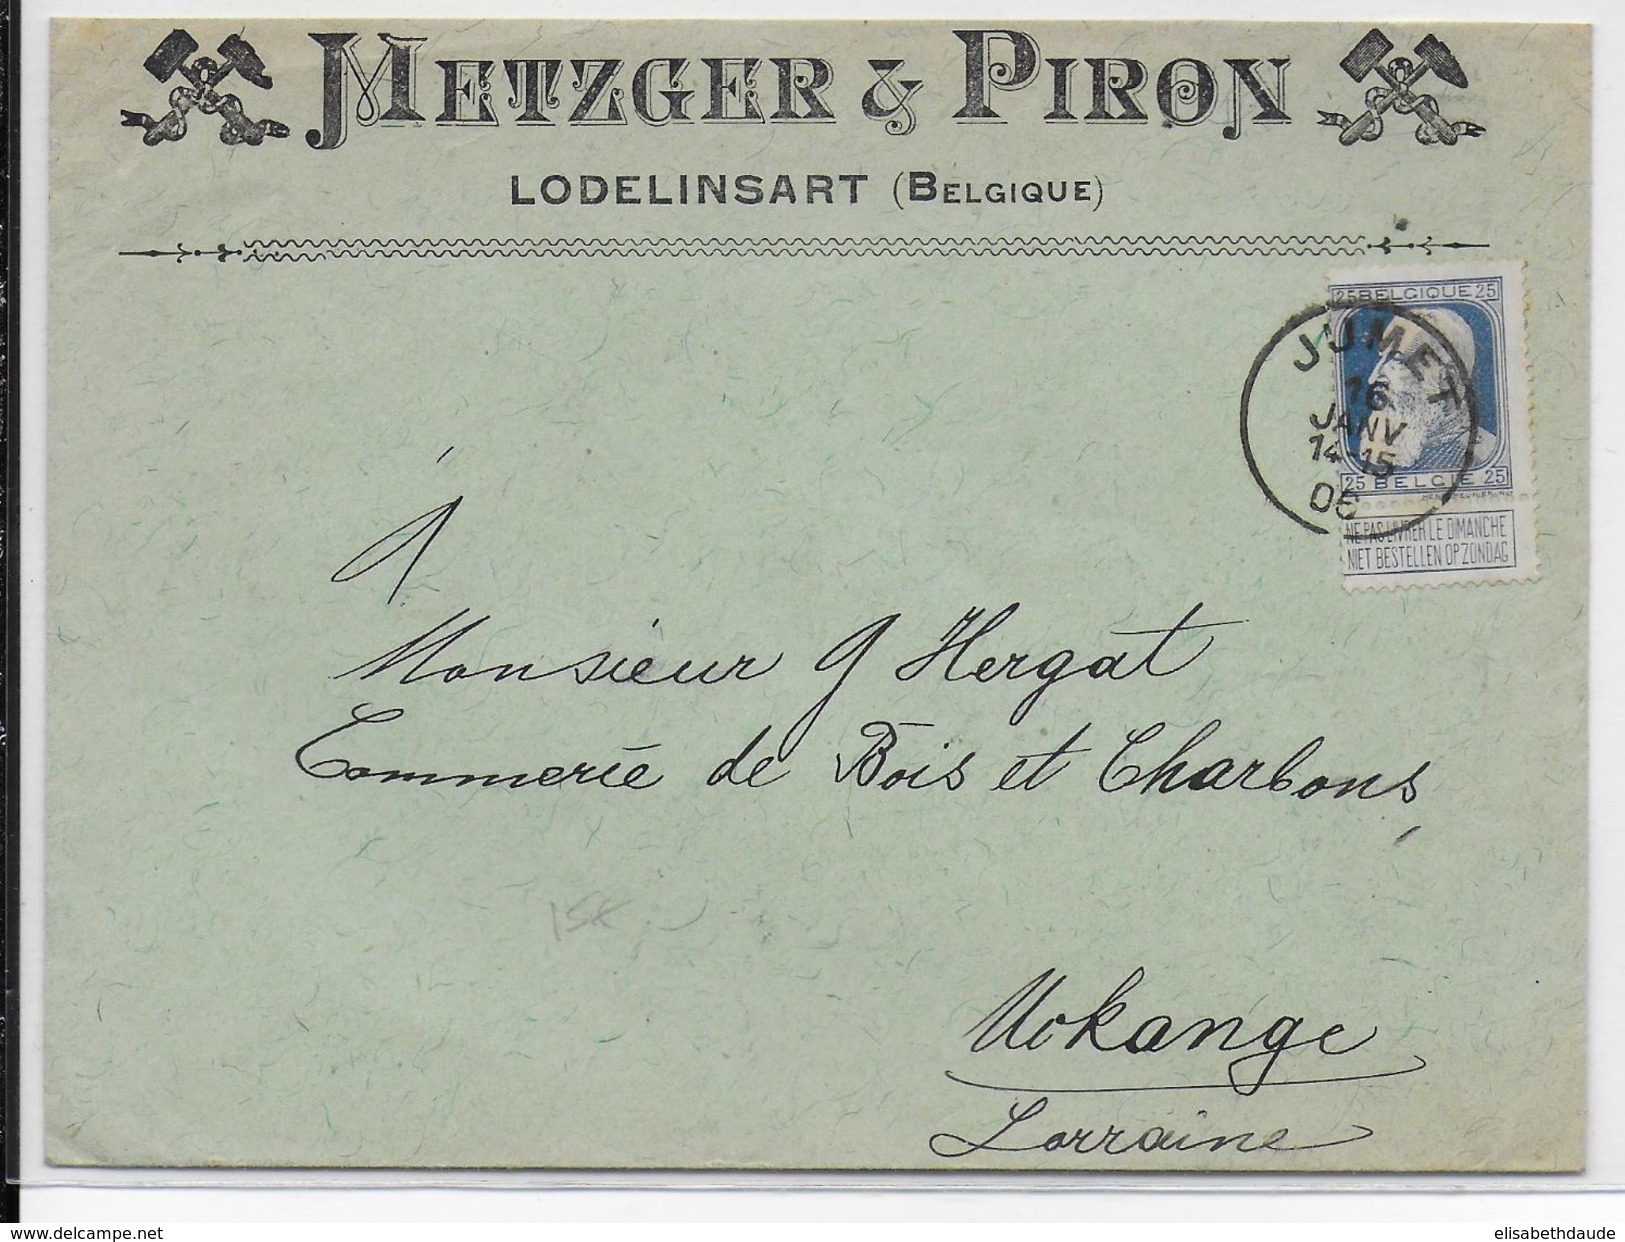 METZGER & PIRON
LODELINSART (BELGIQUE)
25 BELGIQUE 25
JUMET
16
JANV
14-15
06
25 BELGIE 25
NE PAS LIVRER LE DIMANCHE
NIET BESTELLEN OP ZONDAG
A
Monsieur J Hergat
Commerce de Bois et Charbons,
Uckange
Lorraine
www.delcampe.net
elisabethdaude